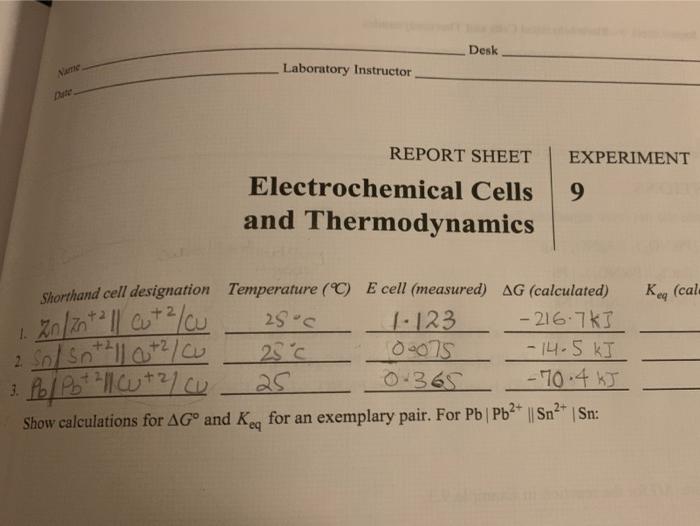 Desk
Name
Laboratory Instructor
Date
REPORT SHEET EXPERIMENT
Electrochemical Cells 9
and Thermodynamics
Shorthand cell designation Temperature (°C) E cell (measured) ΔG (calculated) Keq (cal
1. Zn/Zn+2 || Cu+2/Cu 25°C 1.123 -216.7kJ
2. Sn/Sn+2 || Cu+2/Cu 25°C 0.075 -14.5 kJ
3. Pb/Pb+2 || Cu+2/Cu 25 0.365 -70.4 kJ
Show calculations for ΔG° and Keq for an exemplary pair. For Pb | Pb2+ || Sn2+ | Sn: